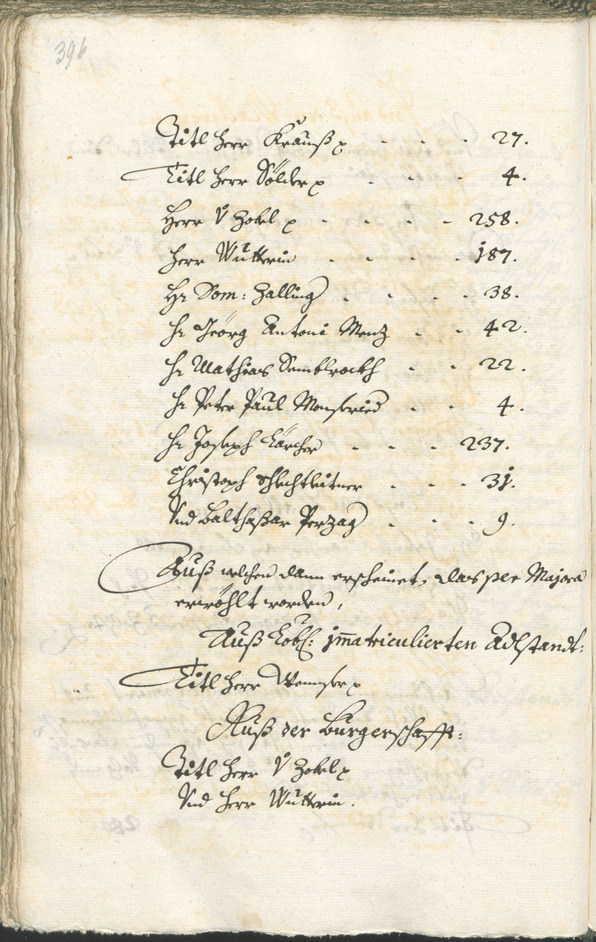 396
Titl Herr Krauß p - - - 27.
Titl Herr Sölder p - - - 4.
Herr v Zobel p - - - - 258.
Herr Wütterin - - - - 187.
Hr Dom: Zalling - - - 38.
Hr Jeörg Antoni Menz - - 42.
Hr Mathias Sembtrockh - - 22.
Hr Peter Paul Monfried - - 4.
Hr Joseph Lärcher - - - 237.
Christoph Schlechtleitner - - 31.
Vnd Balthaßar Perzag - - - 9.
Auß welchen dann erscheinet, das per Majora
erwöhlt worden,
Auß Löbl: jmatriculierten Adlstandt:
Titl Herr Wennser p
Auß der Burgerschafft:
Titl Herr v Zobel p
Vnd Herr Wütterin.